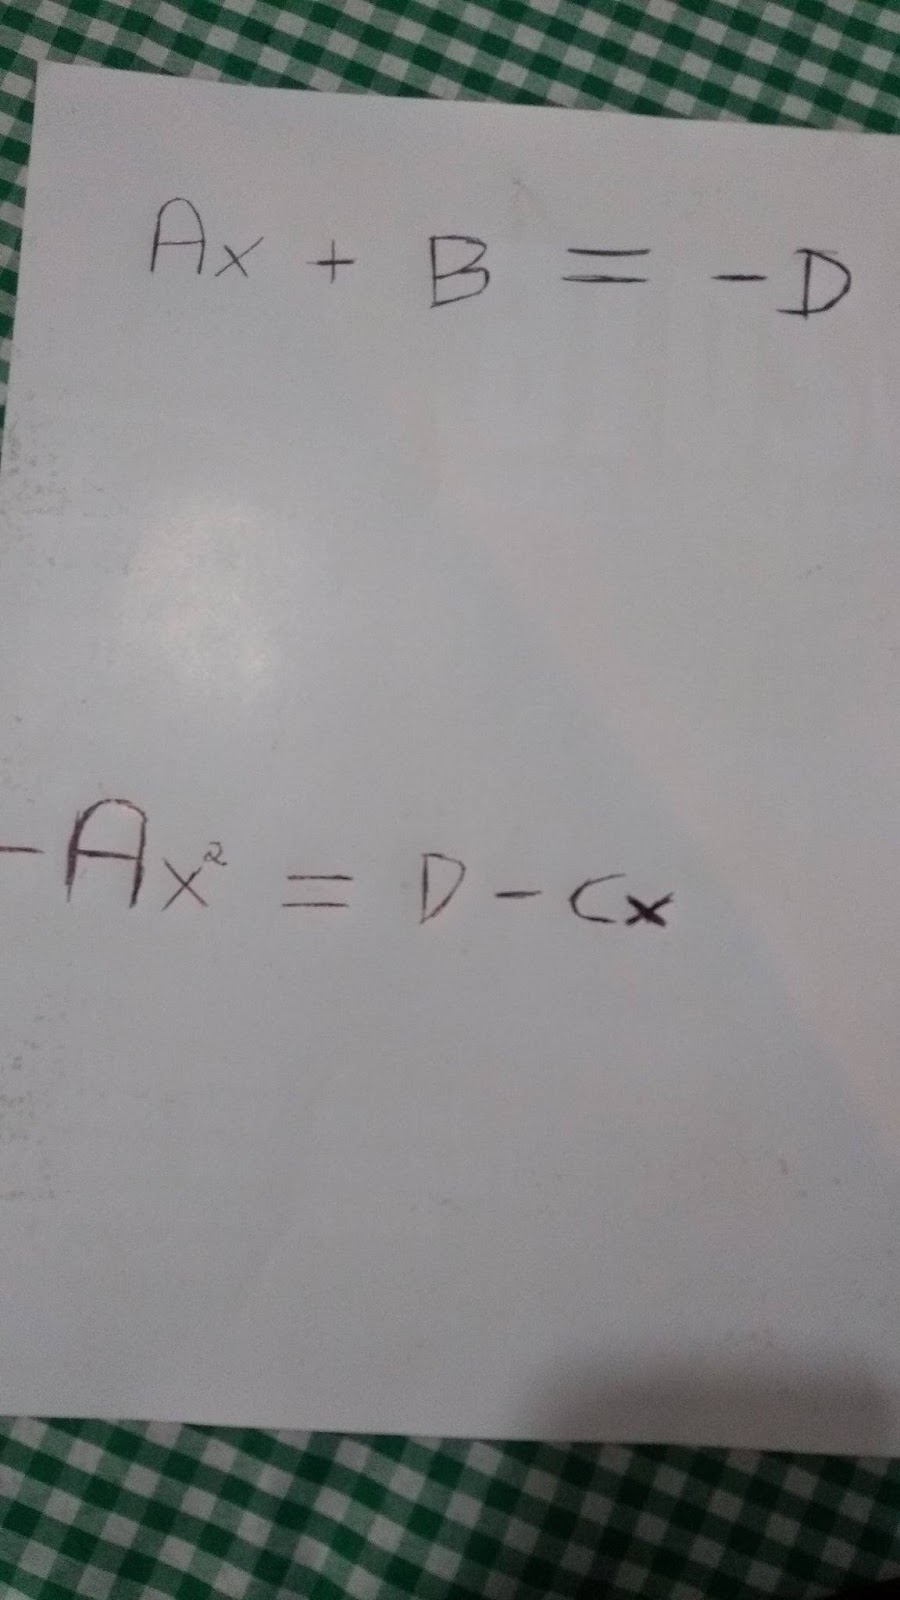 Ax + B = -D
-Ax² = D - Cx